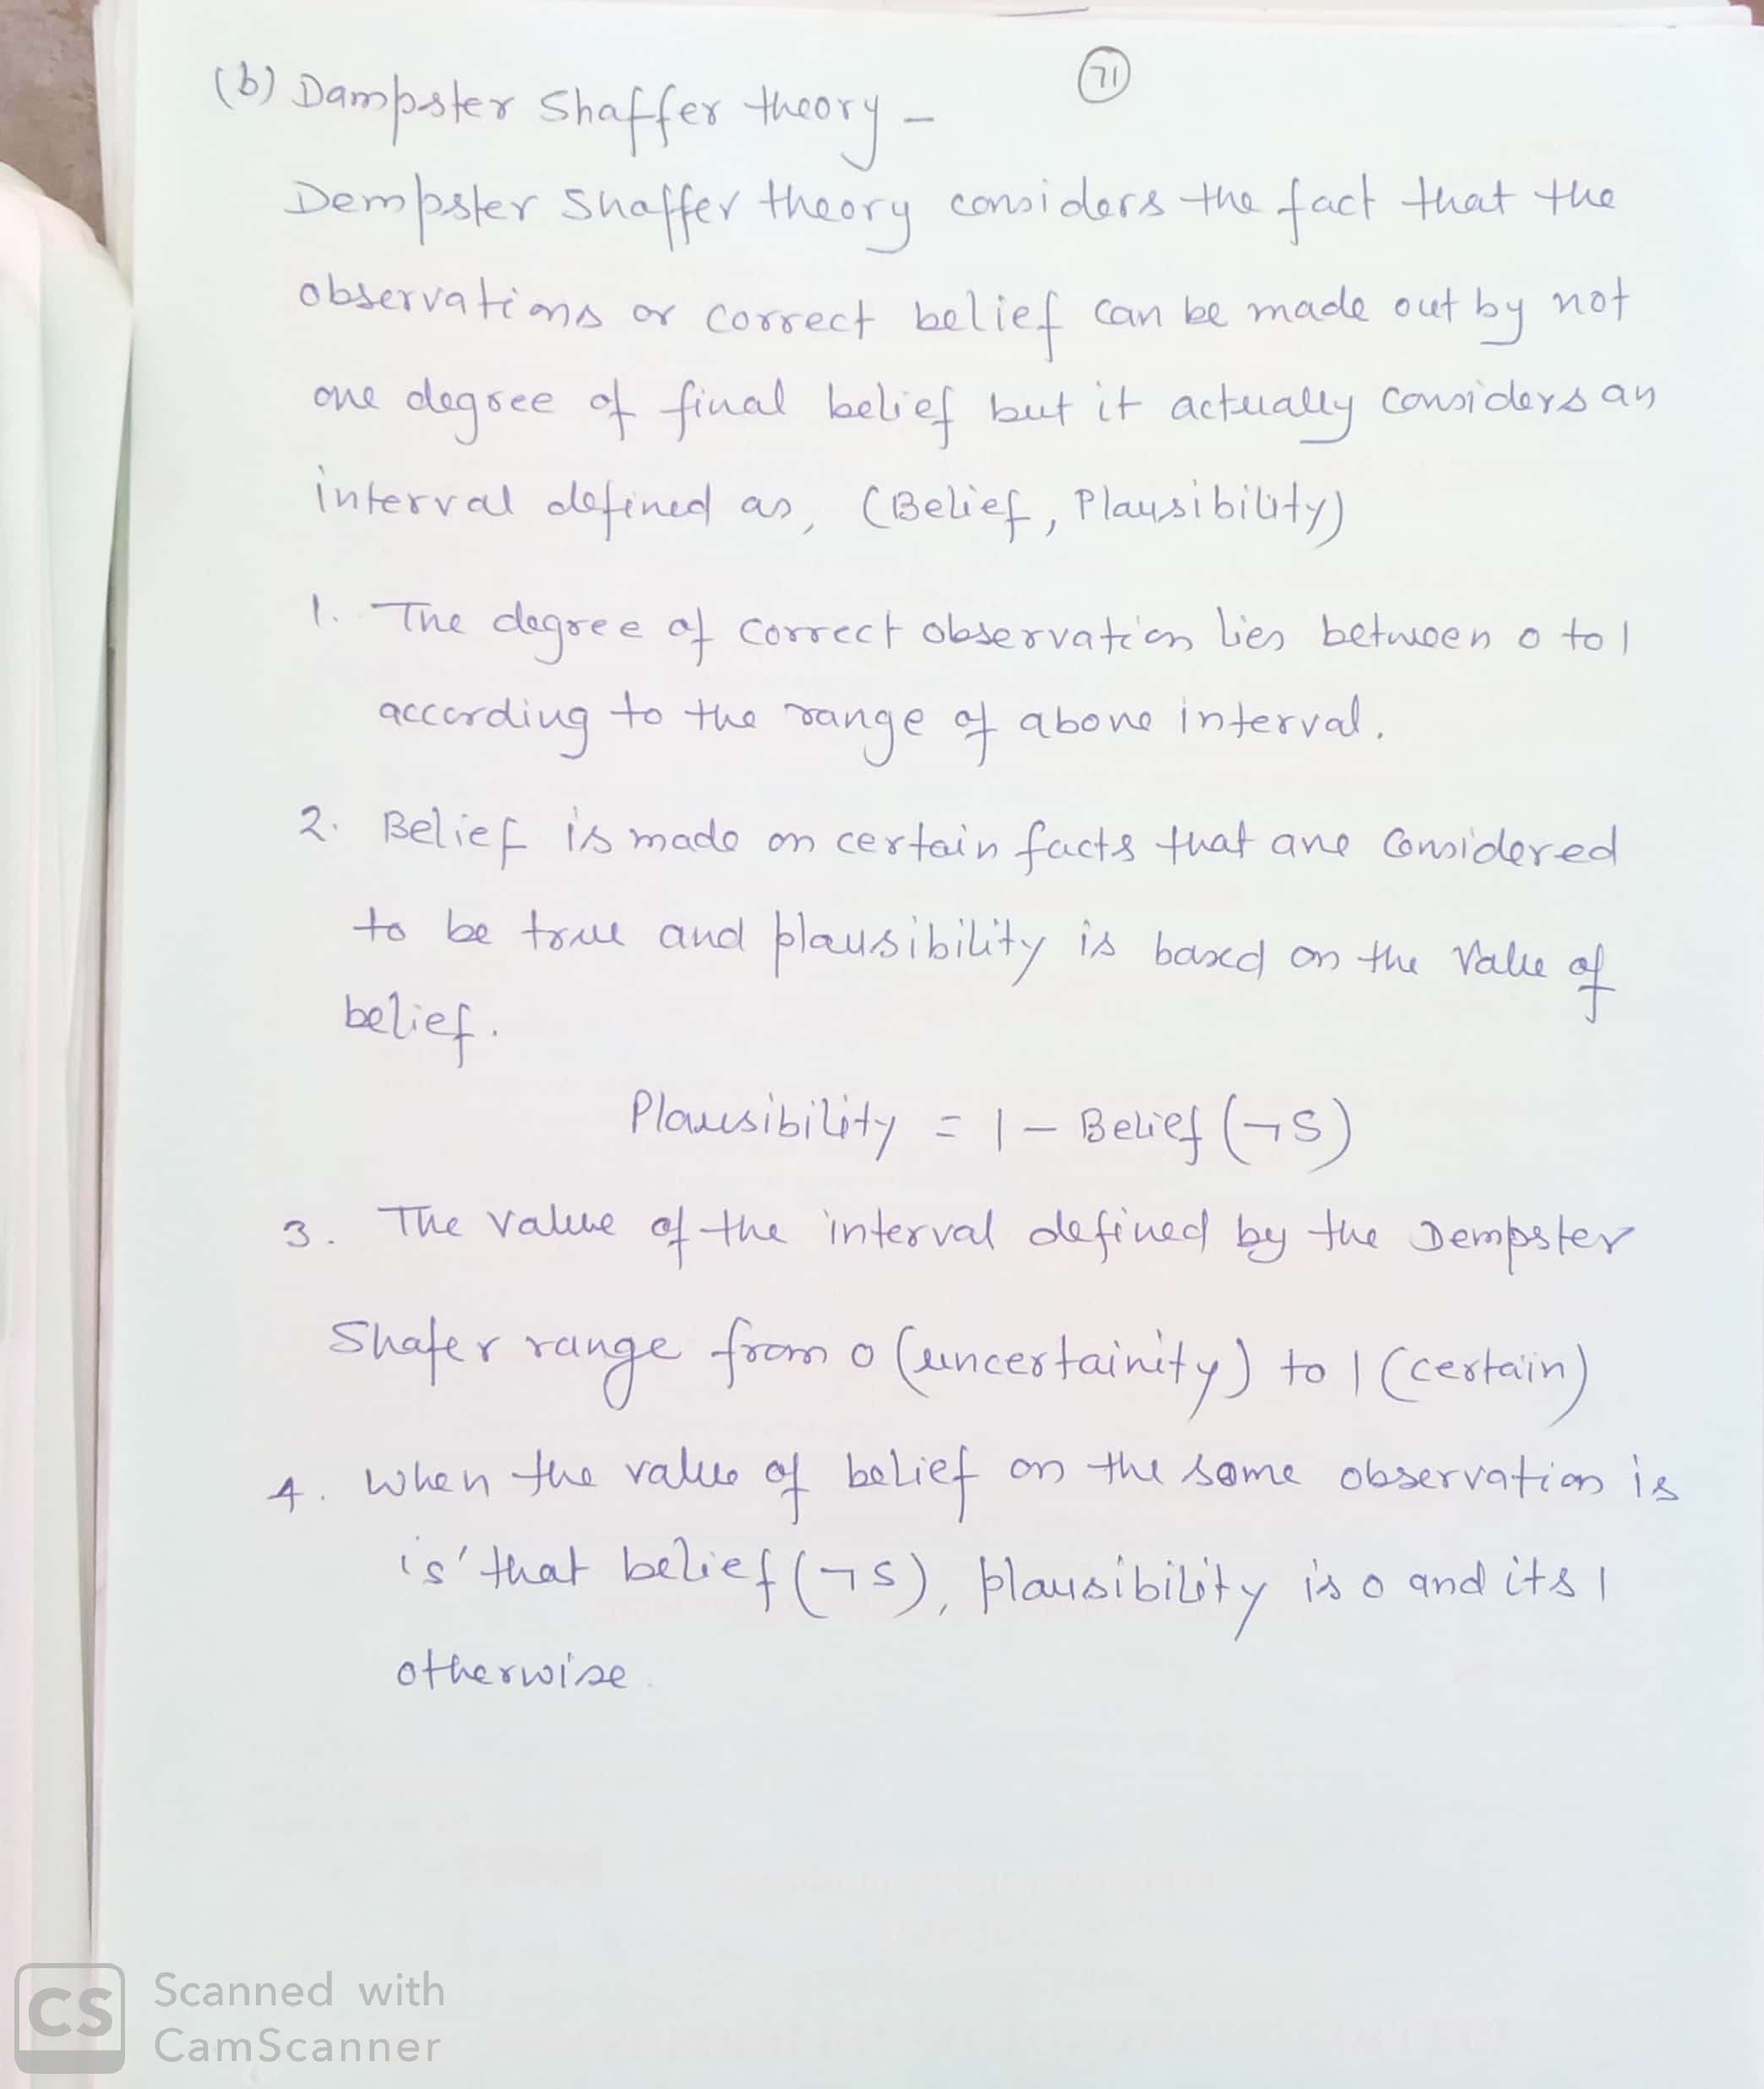 71
(b) Dampster Shaffer theory -
Dempster Shaffer theory considers the fact that the
observations or correct belief can be made out by not
one degree of final belief but it actually considers an
interval defined as, (Belief, Plausibility)
1. The degree of correct observation lies between 0 to 1
according to the range of above interval.
2. Belief is made on certain facts that are Considered
to be true and plausibility is based on the value of
belief.
Plausibility = 1 - Belief (¬S)
3. The value of the interval defined by the Dempster
Shafer range from 0 (uncertainity) to 1 (certain)
4. When the value of belief on the same observation is
is' that belief (¬S), plausibility is 0 and its 1
otherwise.
CS Scanned with
CamScanner